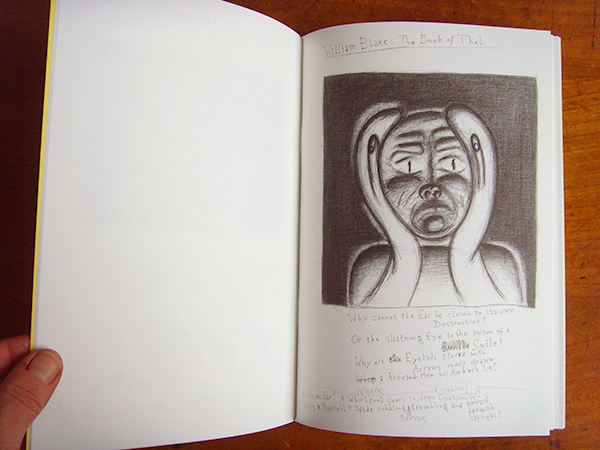 William Blake: The Book of Thel
Why cannot the Ear be closed to its own
Destruction?
Or the glistning Eye to the poison of a
Smile?
Why are Eyelids stored with
Arrows ready drawn
a thousand men in Ambush lie?
Where fighting
an Ear, A whirlpool fierce to draw Creations in?
Why a Nostril wide inhaling trembling and
terror affright?